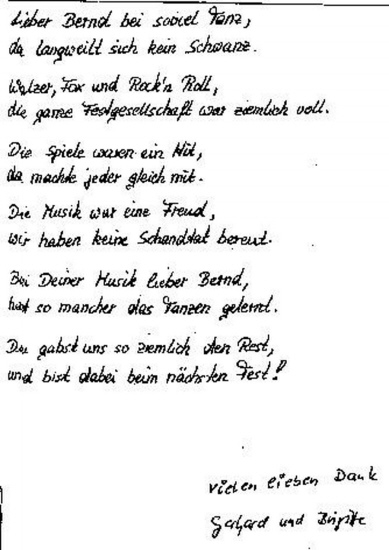 Lieber Bernd bei soviel Tanz,
da langweilt sich kein Schwanz.
Walzer, Fox und Rock'n Roll,
die ganze Festgesellschaft war ziemlich voll.
Die Spiele waren ein Hit,
da machte jeder gleich mit.
Die Musik war eine Freud,
wir haben keine Schandtat bereut.
Bei Deiner Musik lieber Bernd,
hat so mancher das Tanzen gelernt.
Du gabst uns so ziemlich den Rest,
und bist dabei beim nächsten Fest!
vielen lieben Dank
Gerhard und Brigitte